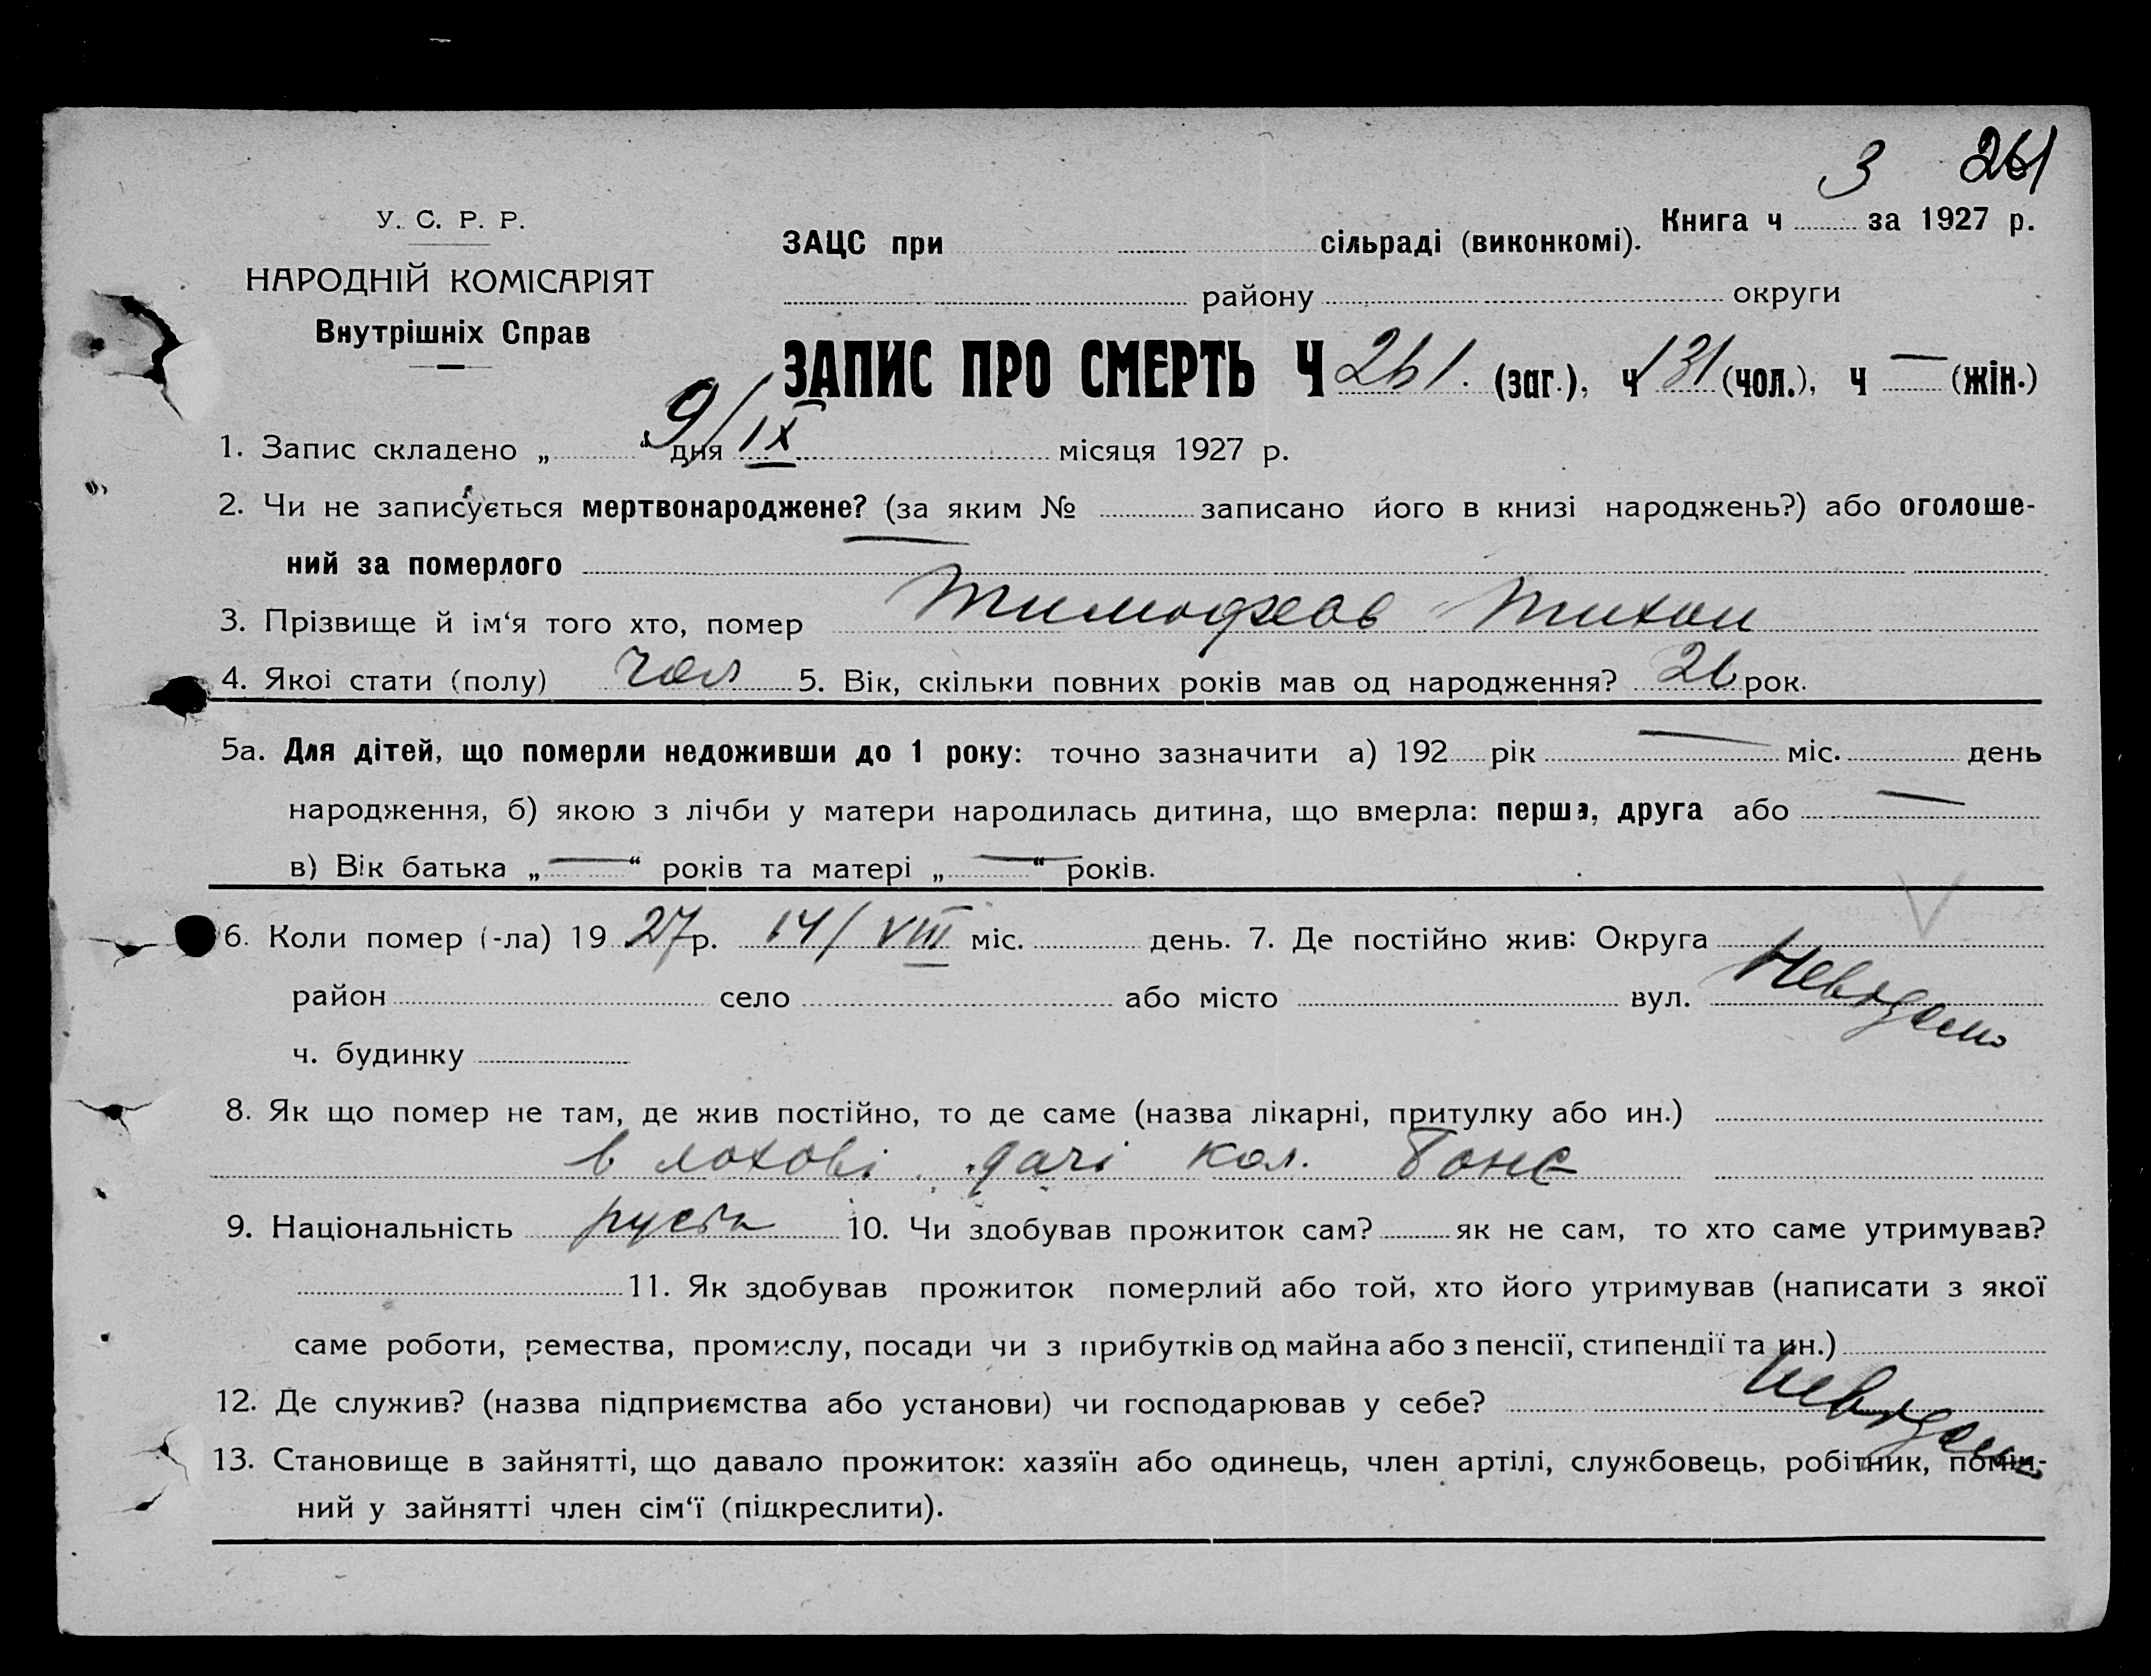 3 261
У. С. Р. Р.
НАРОДНІЙ КОМІСАРІЯТ
Внутрішніх Справ
Книга ч за 1927 р.
ЗАЦС при сільраді (виконкомі).
району округи
ЗАПИС ПРО СМЕРТЬ Ч 261. (заг.), ч 131 (чол.), ч — (жін.)
1. Запис складено „ 9/IX “ дня місяця 1927 р.
2. Чи не записується мертвонароджене? (за яким № записано його в книзі народжень?) або оголоше-
ний за померлого —
3. Прізвище й ім‘я того хто, помер Тимофеев Тихон
4. Якої стати (полу) чол 5. Вік, скільки повних років мав од народження? 26 рок.
5а. Для дітей, що померли недоживши до 1 року: точно зазначити а) 192 рік — міс. день
народження, б) якою з лічби у матери народилась дитина, що вмерла: перша, друга або —
в) Вік батька „—“ років та матері „—“ років.
6. Коли помер (-ла) 1927 р. 14/VIII міс. день. 7. Де постійно жив: Округа
район село або місто вул. Невідомо
ч. будинку
8. Як що помер не там, де жив постійно, то де саме (назва лікарні, притулку або ин.)
в дачі кол.
9. Національність руськ 10. Чи здобував прожиток сам? як не сам, то хто саме утримував?
11. Як здобував прожиток померлий або той, хто його утримував (написати з якої
саме роботи, ремества, промислу, посади чи з прибутків од майна або з пенсії, стипендії та ин.)
12. Де служив? (назва підприємства або установи) чи господарював у себе? невідомо
13. Становище в зайнятті, що давало прожиток: хазяїн або одинець, член артілі, службовець, робітник, поміч-
ний у зайнятті член сім‘ї (підкреслити).